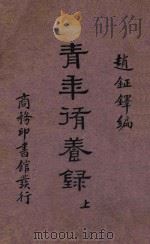 趙鉦鐸編
青年脩養錄
上
商務印書館發行